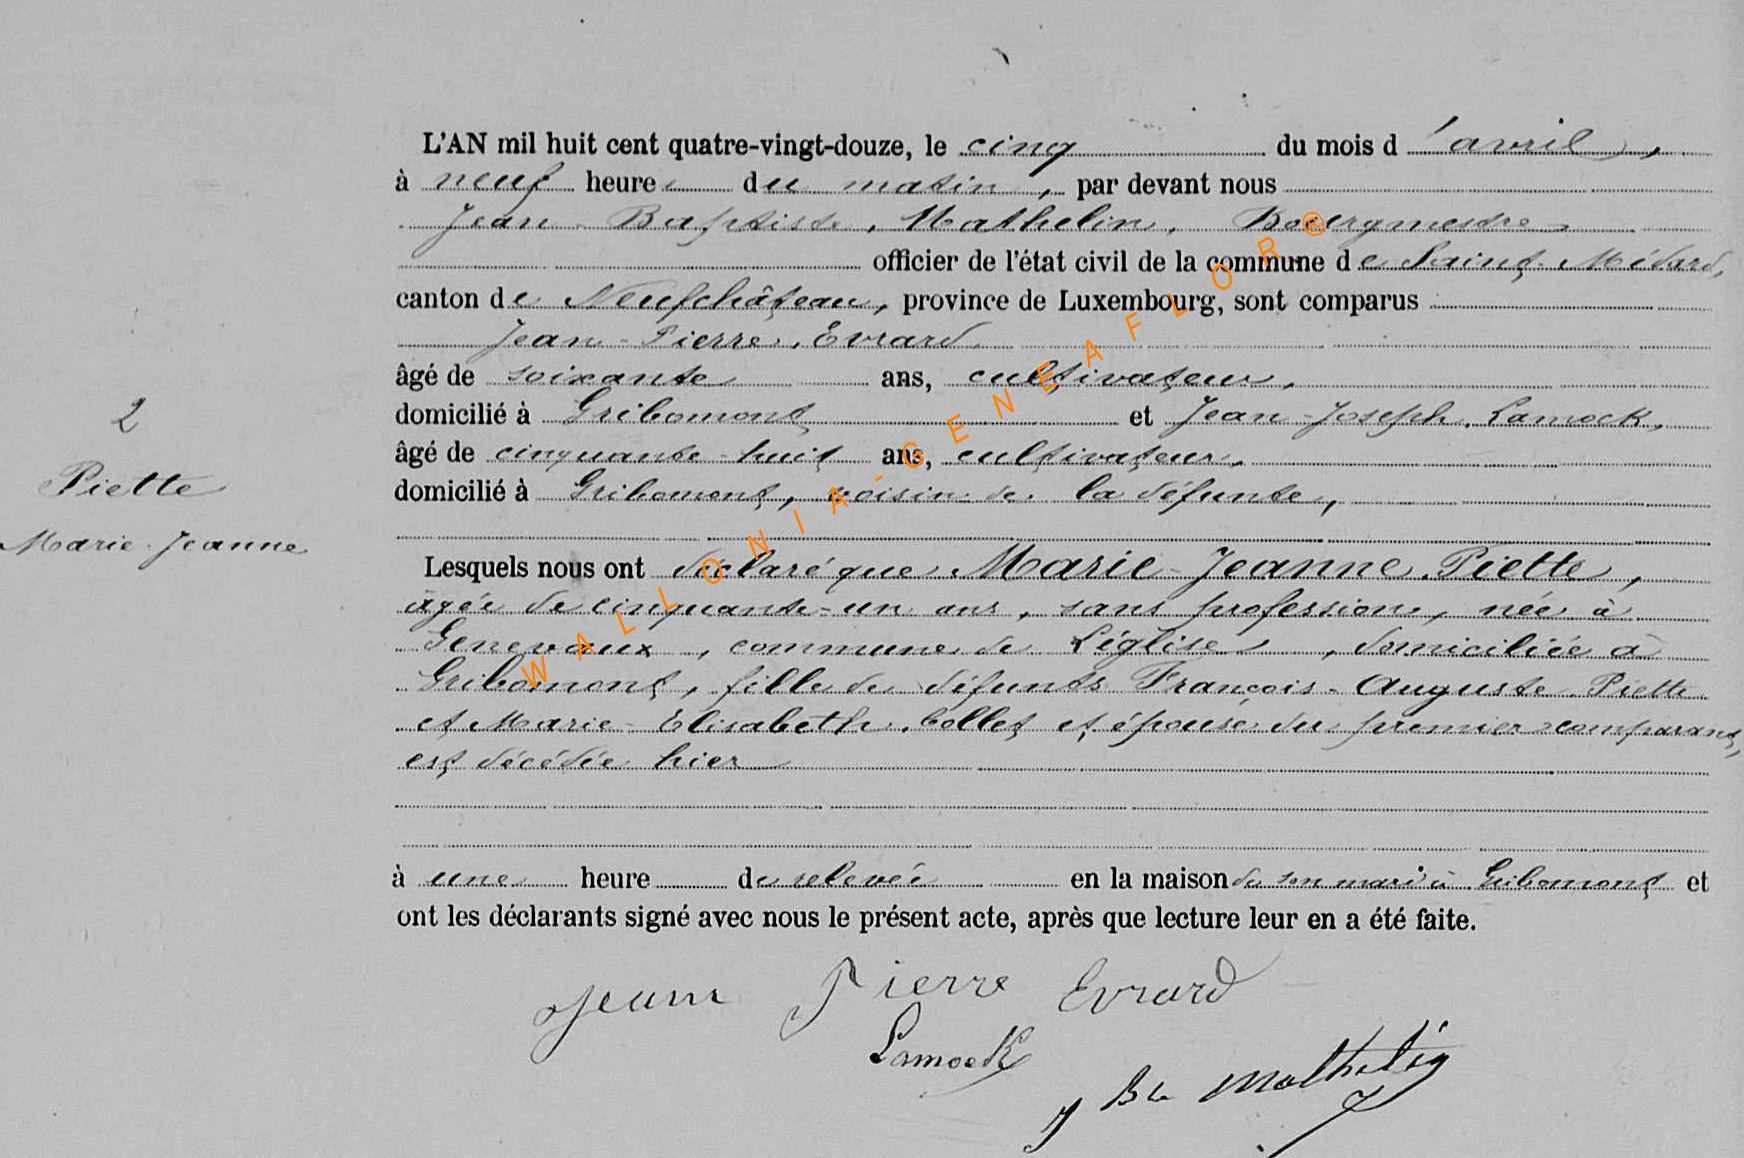 L'AN mil huit cent quatre-vingt-douze, le cinq du mois d'avril,
à neuf heures du matin, par devant nous
Jean-Baptiste, Mathelin, Bourgmestre
officier de l'état civil de la commune de Saint-Médard,
canton de Neufchâteau, province de Luxembourg, sont comparus
Jean-Pierre, Evrard
âgé de soixante ans, cultivateur,
2
domicilié à Gribomont et Jean-Joseph, Lamock,
âgé de cinquante-huit ans, cultivateur,
Piette
domicilié à Gribomont, voisin de la défunte,
Marie-Jeanne
Lesquels nous ont déclaré que Marie-Jeanne, Piette,
âgée de cinquante-un ans, sans profession, née à
Genevaux, commune de Léglise, domiciliée à
Gribomont, fille de défunts François-Auguste Piette
et Marie-Elisabeth, Collet et épouse du premier comparant,
est décédée hier
à une heure de relevée en la maison de son mari à Gribomont et
ont les déclarants signé avec nous le présent acte, après que lecture leur en a été faite.
Jean Pierre Evrard
Lamock
J Bte Mathelin
WALLONIA-GENEAFLOR©